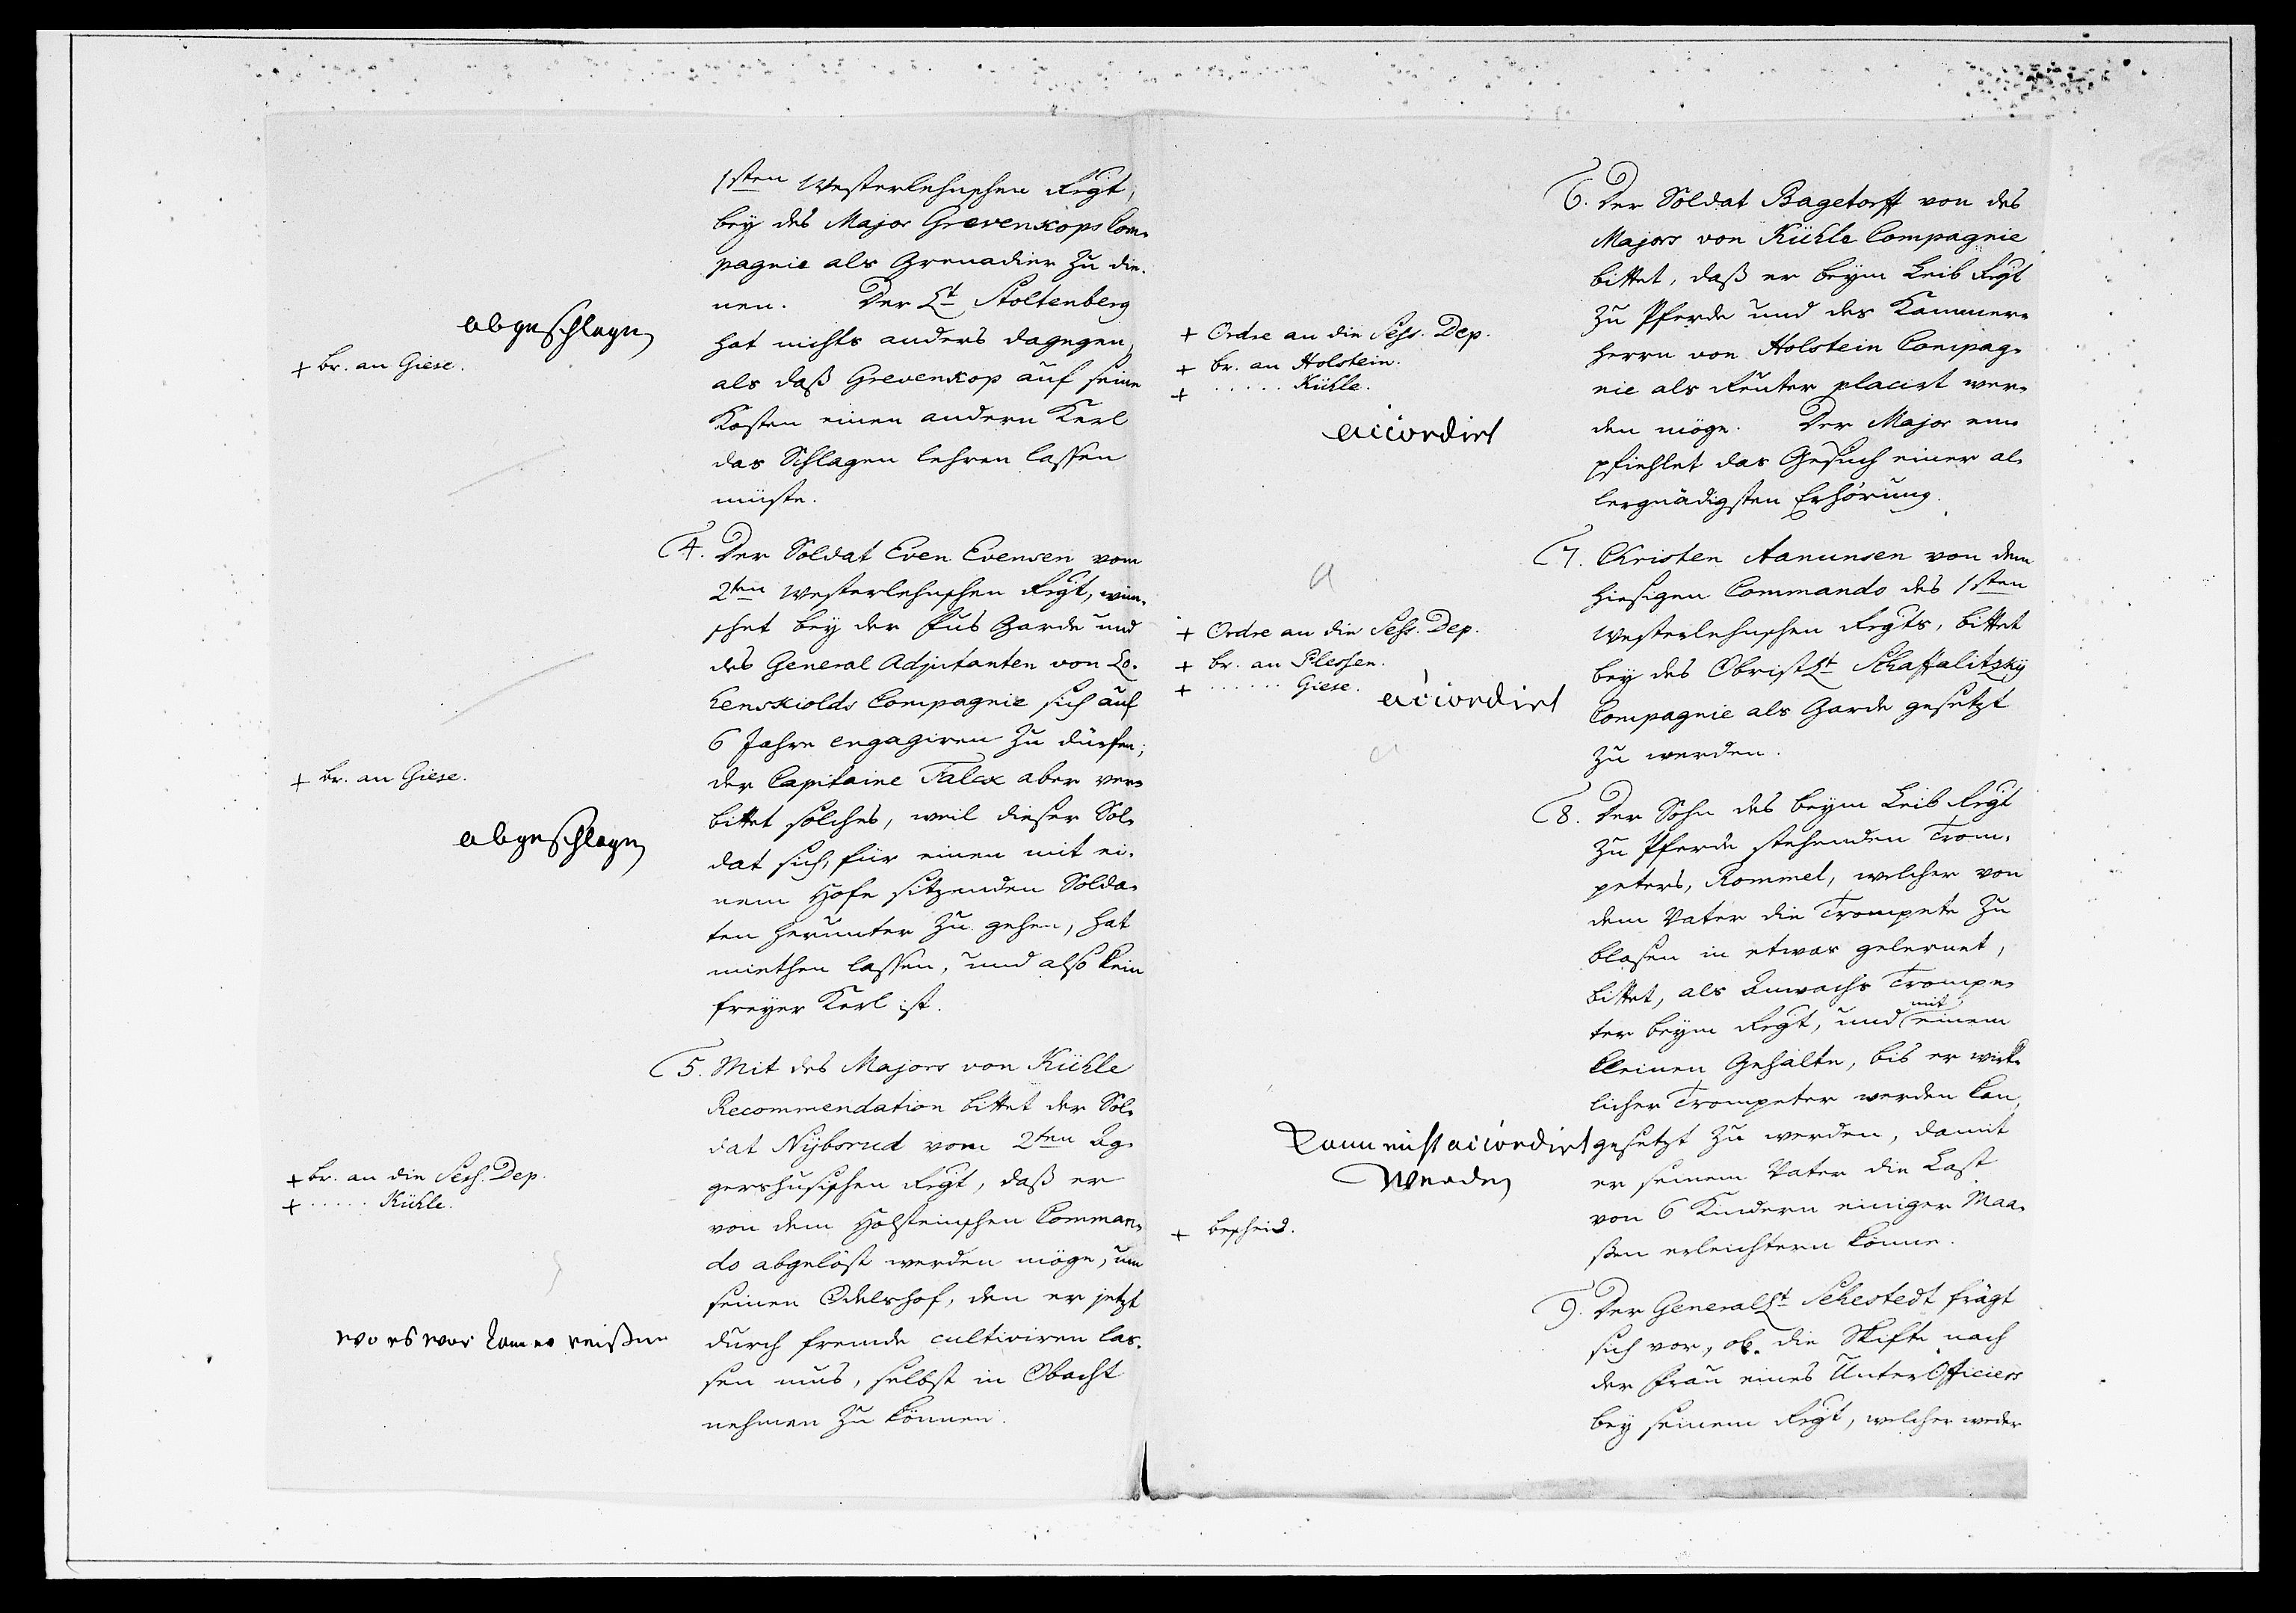 1sten Westerlehnschen Regt,
bey des Major Grevenkops Com-
pagnie als Grenadier zu die-
nen. Der Lt Stoltenberg
hat nichts anders dagegen,
als daß Grevenkop auf seine
Kosten einen andern Kerl
das Schlagen lehren lassen
müste.
abgeschlagen
+ Br. an Giese.
4. Der Soldat Even Evensen vom
2ten Westerlehnschen Regt, wün-
schet bey der Fus Garde und
des General Adjutanten von Lö-
henskiolds Compagnie sich auf
6 Jahre engagiren zu dürfen;
der Capitaine Falck aber ver-
bittet solches, weil dieser Sol-
dat sich, für einen mit ei-
nem Hofe sitzenden Solda-
ten herunter zu gehen, hat
miethen lassen, und also kein
freyer Kerl ist.
+ Br. an Giese.
abgeschlagen
5. Mit des Majors von Kühle
Recommendation bittet der Sol-
dat Nybsrud vom 2ten Ag-
gershusischen Regt, daß er
von dem Holsteinschen Comman-
do abgelöst werden möge, um
seinen Odelshof, den er jetzt
durch fremde cultiviren las-
sen mus, selbst in Obacht
nehmen zu können.
+ Br. an die Sess. Dep.
+ ..... Kühle.
wo es war kan er reißen
6. Der Soldat Bagetorff von des
Majors von Kühle Compagnie
bittet, daß er beym Leib Regt
zu Pferde und des Kammer-
herrn von Holstein Compag-
nie als Reuter placirt wer-
den möge. Der Major em-
pfiehlet das Gesuch einer al-
lergnädigsten Erhörung.
+ Ordre an die Sess. Dep.
+ Br. an Holstein.
+ ..... Kühle.
accordirt
7. Christen Aanunsen von dem
hiesigen Commando des 1sten
Westerlehnschen Regts, bittet
bey des ObristLt Schaffalitzky
Compagnie als Garde gesetzt
zu werden.
+ Ordre an die Sess. Dep.
+ Br. an Plessen.
+ ...... Giese.
accordirt
8. Der Sohn des beym Leib Regt
zu Pferde stehenden Trom-
peters, Rommel, welcher von
dem Vater die Trompete zu
blasen in etwas gelernet,
bittet, als Anwachs Trompe-
ter beym Regt, und mit einem
kleinen Gehalte, bis er wirk-
licher Trompeter werden kan,
gesetzt zu werden, damit
er seinem Vater die Last
von 6 Kindern einiger Maa-
ßen erleichtern könne.
Kann nicht accordirt
werden
+ Bescheid.
9. Der GeneralLt Sehestedt frägt
sich vor, ob die Skifte nach
der Frau eines Unter Officiers
bey seinem Regt, welcher weder